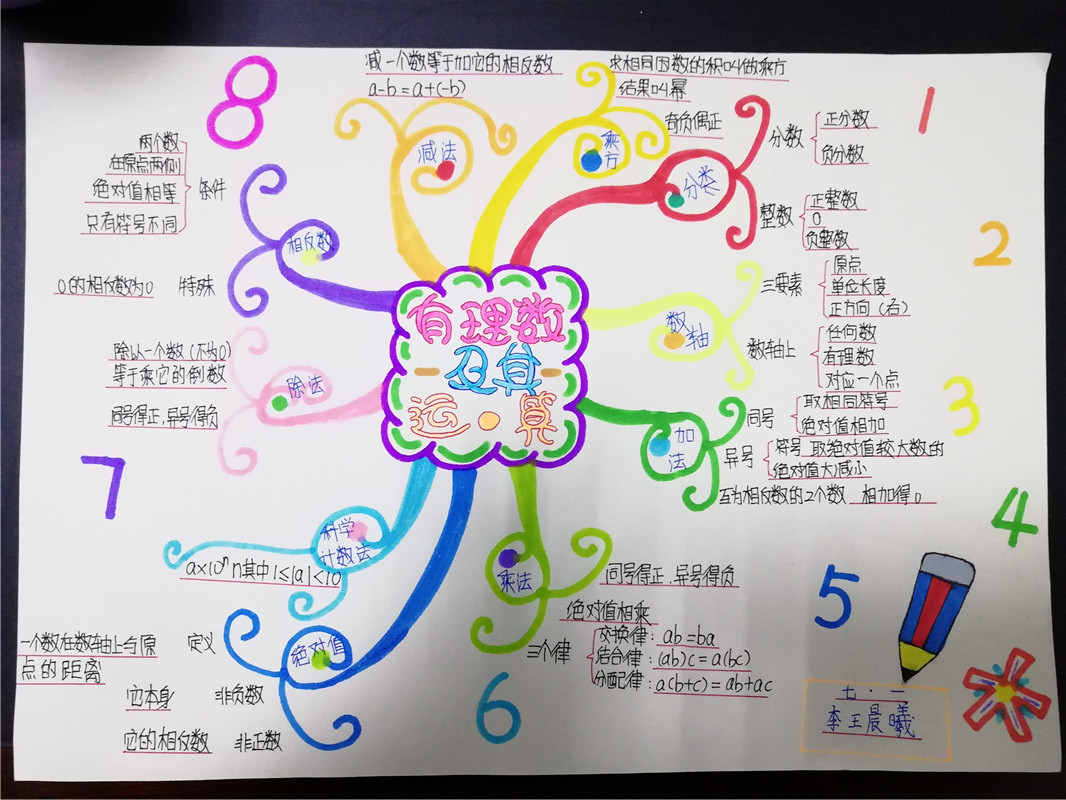 有理数
及其
运·算
1
2
3
4
5
6
7
8
分类
分数
正分数
负分数
整数
正整数
0
负整数
数轴
三要素
原点
单位长度
正方向（右）
数轴上
任何数
有理数
对应一个点
加法
同号
取相同符号
绝对值相加
异号
符号 取绝对值较大数的
绝对值大减小
互为相反数的2个数 相加得0
乘法
同号得正,异号得负
绝对值相乘
三个律
交换律：ab=ba
结合律：(ab)c=a(bc)
分配律：a(b+c)=ab+ac
绝对值
定义
一个数在数轴上与原
点的距离
它本身 非负数
它的相反数 非正数
科学
计数法
a×10ⁿ n其中1≤|a|<10
除法
除以一个数（不为0）
等于乘它的倒数
同号得正,异号得负
相反数
条件
两个数
在原点两侧
绝对值相等
只有符号不同
0的相反数为0 特殊
减法
减一个数等于加它的相反数
a-b=a+(-b)
乘方
求相同因数的积叫做乘方
结果叫幂
奇负偶正
七·一
李王晨曦